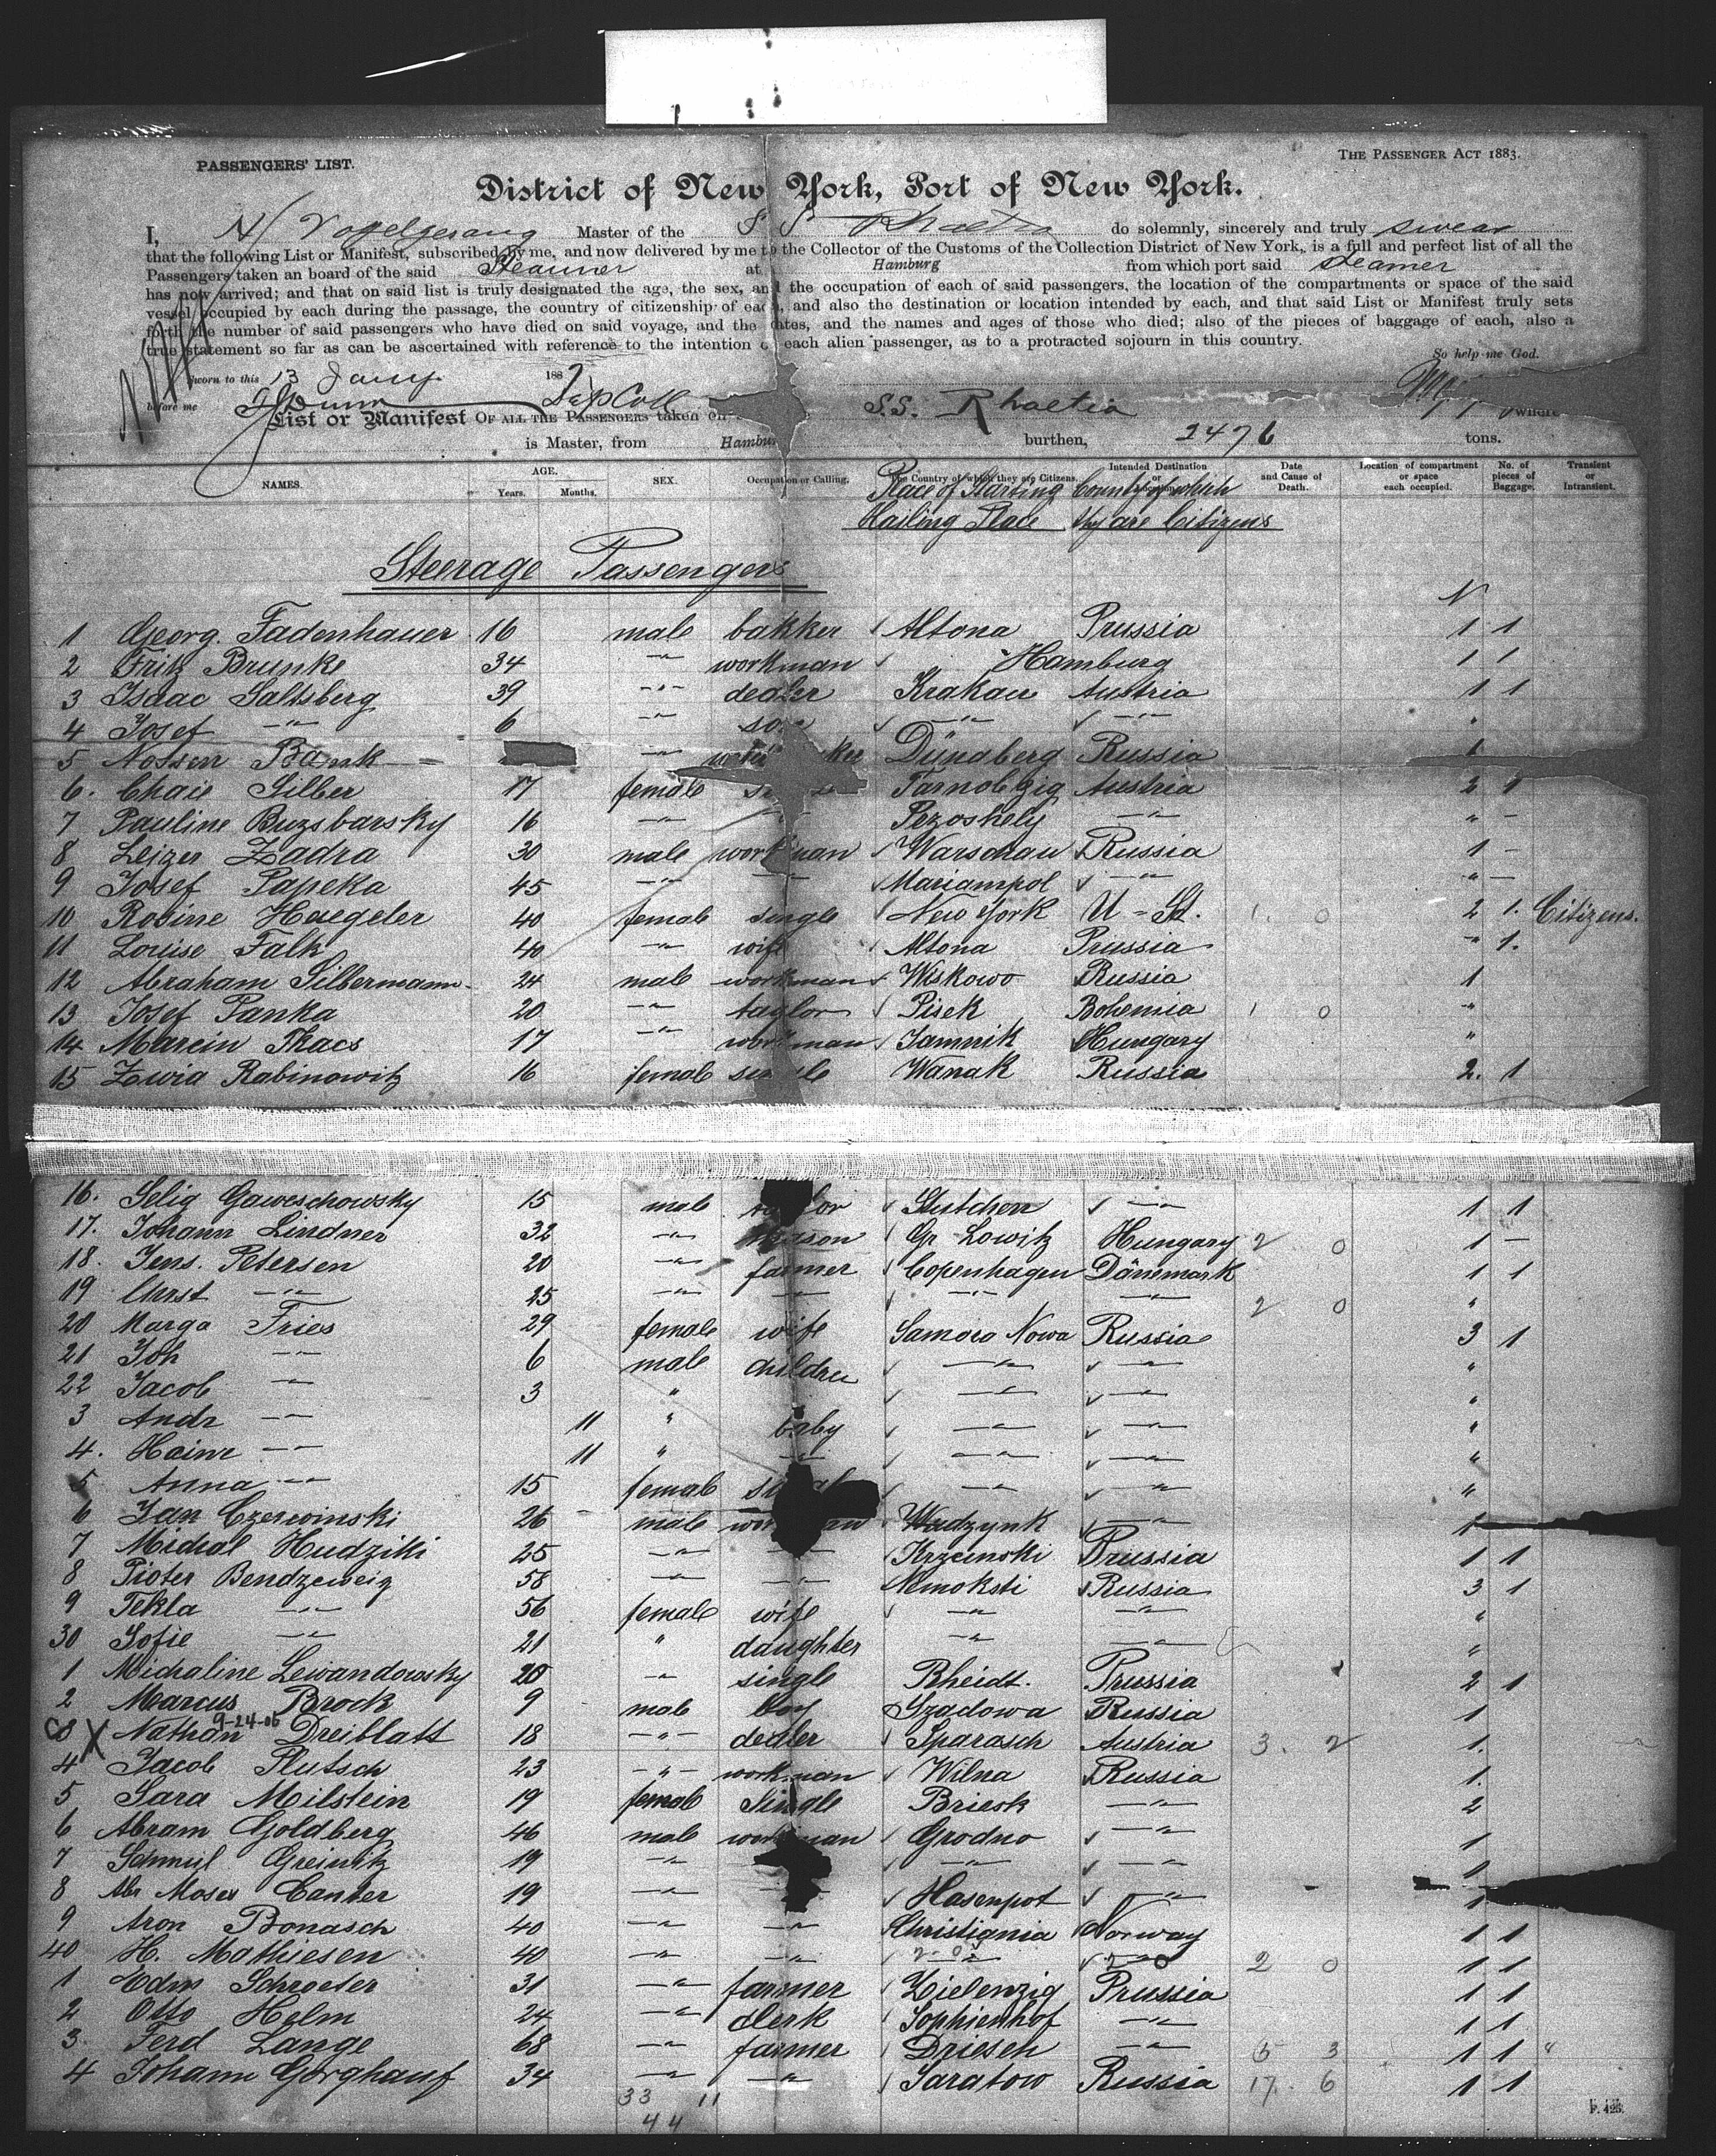 PASSENGERS' LIST.
THE PASSENGER ACT 1883.
District of New York, Port of New York.
I, Vogelgesang Master of the S S Rhaetia do solemnly, sincerely and truly swear
that the following List or Manifest, subscribed by me, and now delivered by me to the Collector of the Customs of the Collection District of New York, is a full and perfect list of all the
Passengers taken an board of the said Steamer at Hamburg from which port said steamer
has now arrived; and that on said list is truly designated the age, the sex, and the occupation of each of said passengers, the location of the compartments or space of the said
vessel occupied by each during the passage, the country of citizenship of each, and also the destination or location intended by each, and that said List or Manifest truly sets
forth the number of said passengers who have died on said voyage, and the dates, and the names and ages of those who died; also of the pieces of baggage of each, also a
true statement so far as can be ascertained with reference to the intention of each alien passenger, as to a protracted sojourn in this country.
So help me God.
Sworn to this 13 Jany 1887
before me Dep Coll
List or Manifest OF ALL THE PASSENGERS taken on S.S. Rhaetia
is Master, from Hamburg burthen, 2476 tons.
NAMES. AGE. Years. Months. SEX. Occupation or Calling. The Country of which they are Citizens. Intended Destination or Date and Cause of Death. Location of compartment or space each occupied. No. of pieces of Baggage. Transient or Intransient.
Place of Starting Country of which
Hailing Place they are Citizens
Steerage Passengers
1 Georg. Fadenhauer 16 male bakker Altona Prussia 1 1
2 Fritz Brunke 34 -"- workman Hamburg 1 1
3 Isaac Saltsberg 39 -"- dealer Krakau Austria 1 1
4 Josef -"- 6 -"- son -"- -"- "
5 Nossen Bank -"- Dünaberg Russia 1
6. Chaie Silber 17 female Tarnobzig Austria 2 1
7 Pauline Buzsbarsky 16 -"- Pezoshely -"- " -
8 Leizer Zadra 30 male workman Warschau Russia 1 -
9 Josef Papeka 45 -"- -"- Mariampol -"- " -
10 Rosine Haegeler 40 female single New York U-St. 1. 0 2 1. Citizens.
11 Louise Falk 40 -"- wife Altona Prussia " 1.
12 Abraham Silbermann 24 male workman Wiskowo Russia 1
13 Josef Panka 20 -"- taylor Pisek Bohemia 1 0 "
14 Marcin Tkacs 17 -"- workman Jamnik Hungary "
15 Zowia Rabinowitz 16 female single Wanak Russia 2. 1
16. Selig Gaweschowsky 15 male taylor Stutchen -"- 1 1
17. Johann Lindner 32 -"- mason Gr Lowitz Hungary 2 0 1 -
18. Jens. Petersen 20 -"- farmer Copenhagen Dänemark 1 1
19 Christ -"- 25 -"- -"- -"- -"- 2 0 "
20 Marga Fries 29 female wife Samora Nowa Russia 3 1
21 Joh -"- 6 male children -"- -"- "
22 Jacob -"- 3 " -"- -"- "
3 Andr -"- 11 " baby -"- -"- "
4. Heinr -"- 11 " -"- -"- -"- "
5 Anna -"- 15 female single -"- -"- "
6 Jan Czerwinski 26 - male workman Wadzynk -"- 1
7 Michal Hudziki 25 -"- -"- Krzeminski Prussia 1 1
8 Pioter Bendzeweig 58 -"- -"- Nemoksti Russia 3 1
9 Tekla -"- 56 female wife -"- -"- "
30 Sofie -"- 21 " daughter -"- -"- "
1 Michaline Lewandowsky 20 -"- single Rheidt. Prussia 2 1
2 Marcus Brock 9 male boy Gzadowa Russia 1
9-24-06
3 X Nathan Dreiblatt 18 -"- dealer Sparasch Austria 3. 2 1.
4 Jacob Plutsch 23 -"- workman Wilna Russia 1.
5 Sara Milstein 19 female single Briesk -"- 2
6 Abram Goldberg 46 male workman Grodno -"- 1
7 Schmul Greinitz 19 -"- -"- -"- 1
8 Abr Moses Canter 19 -"- Hasenpot -"- 1
9 Aron Bonasch 40 -"- -"- Christiania Norway 1 1
40 H. Mathiesen 40 -"- -"- -"- -"- 2 0 1 1
1 Edm Schroeter 31 -"- farmer Zielenzig Prussia 1 1
2 Otto Helm 24 -"- clerk Sophienhof -"- 1 1
3 Ferd Lange 68 -"- farmer Driesen -"- 5 3 1 1 "
4 Johann Gorghauf 34 -"- -"- Saratow Russia 17. 6 1 1
33 11
44
F. 425.